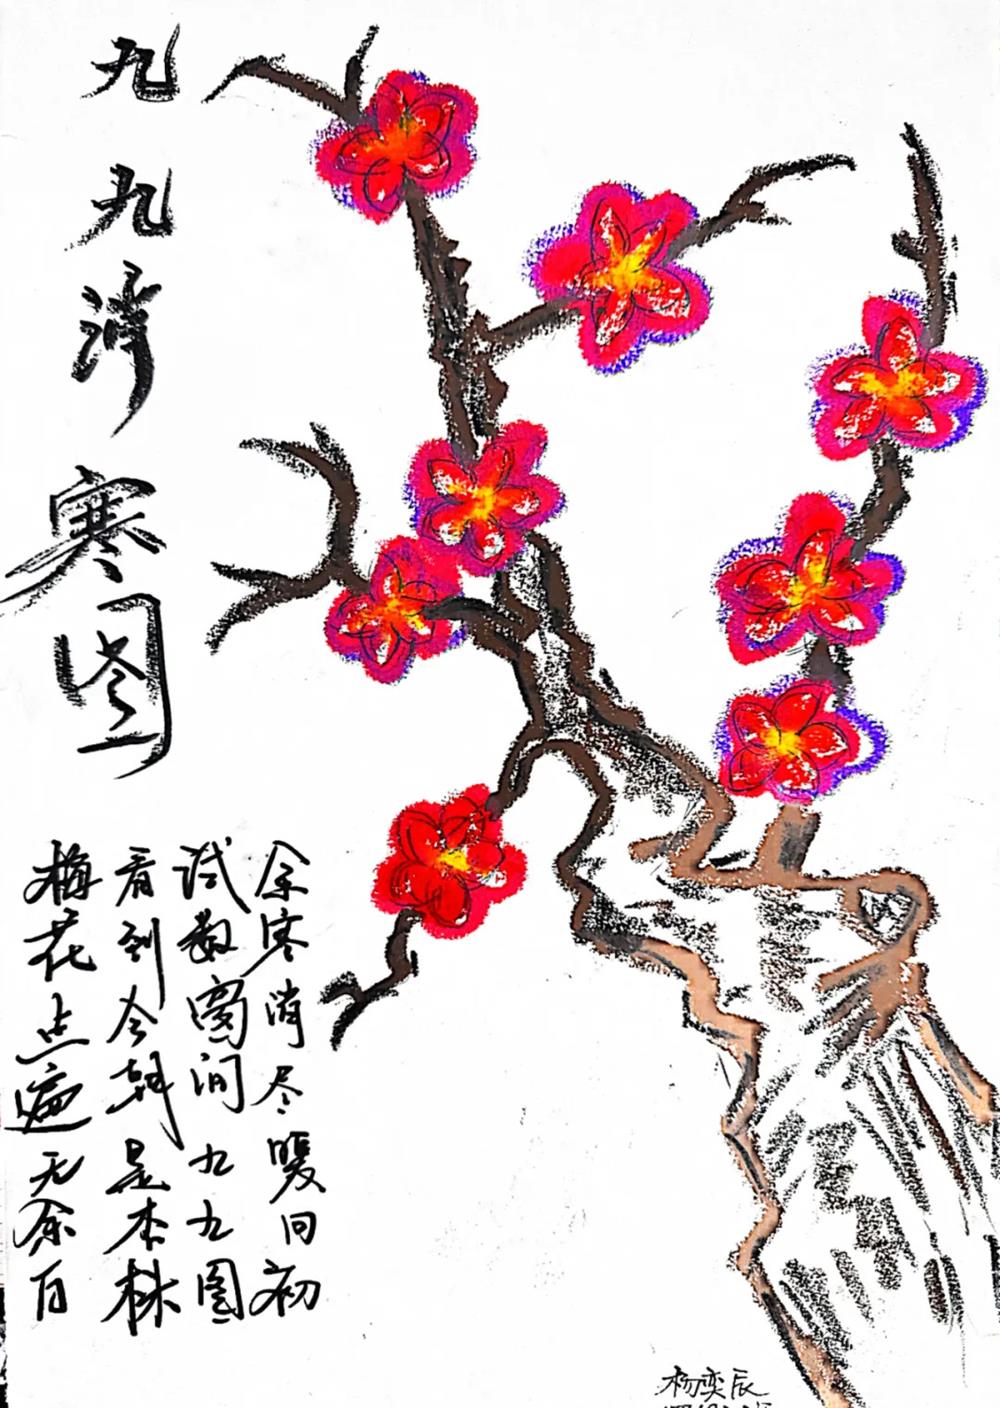 九九消寒图
余寒消尽暖回初
试数窗间九九图
看到今朝是杏株
梅花点遍无余白
杨奕辰